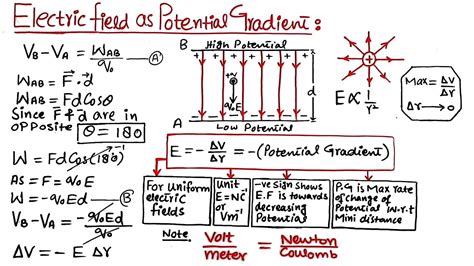 Electric field as Potential Gradient:
V_B - V_A = W_AB / q₀ (A)
W_AB = F⃗ · d⃗
W_AB = Fd Cosθ
Since F⃗ & d⃗ are in
opposite θ = 180
W = Fd Cos(180°) -1
As = F = q₀E
W = -q₀Ed (B)
V_B - V_A = -q₀Ed / q₀
ΔV = -E Δr
B High Potential
+ + + + + + +
q₀E
d
A Low Potential
E ∝ 1/r²
Max = ΔV/Δr
Δr → 0
E = - ΔV/Δr = -(Potential Gradient)
For Uniform
electric
fields
Unit
E = NC⁻¹
or
Vm⁻¹
-ve Sign shows
E.F is towards
decreasing
Potential
P.G is Max rate
of change of
Potential w.r.t
Mini distance
Note: Volt/meter = Newton/Coulomb